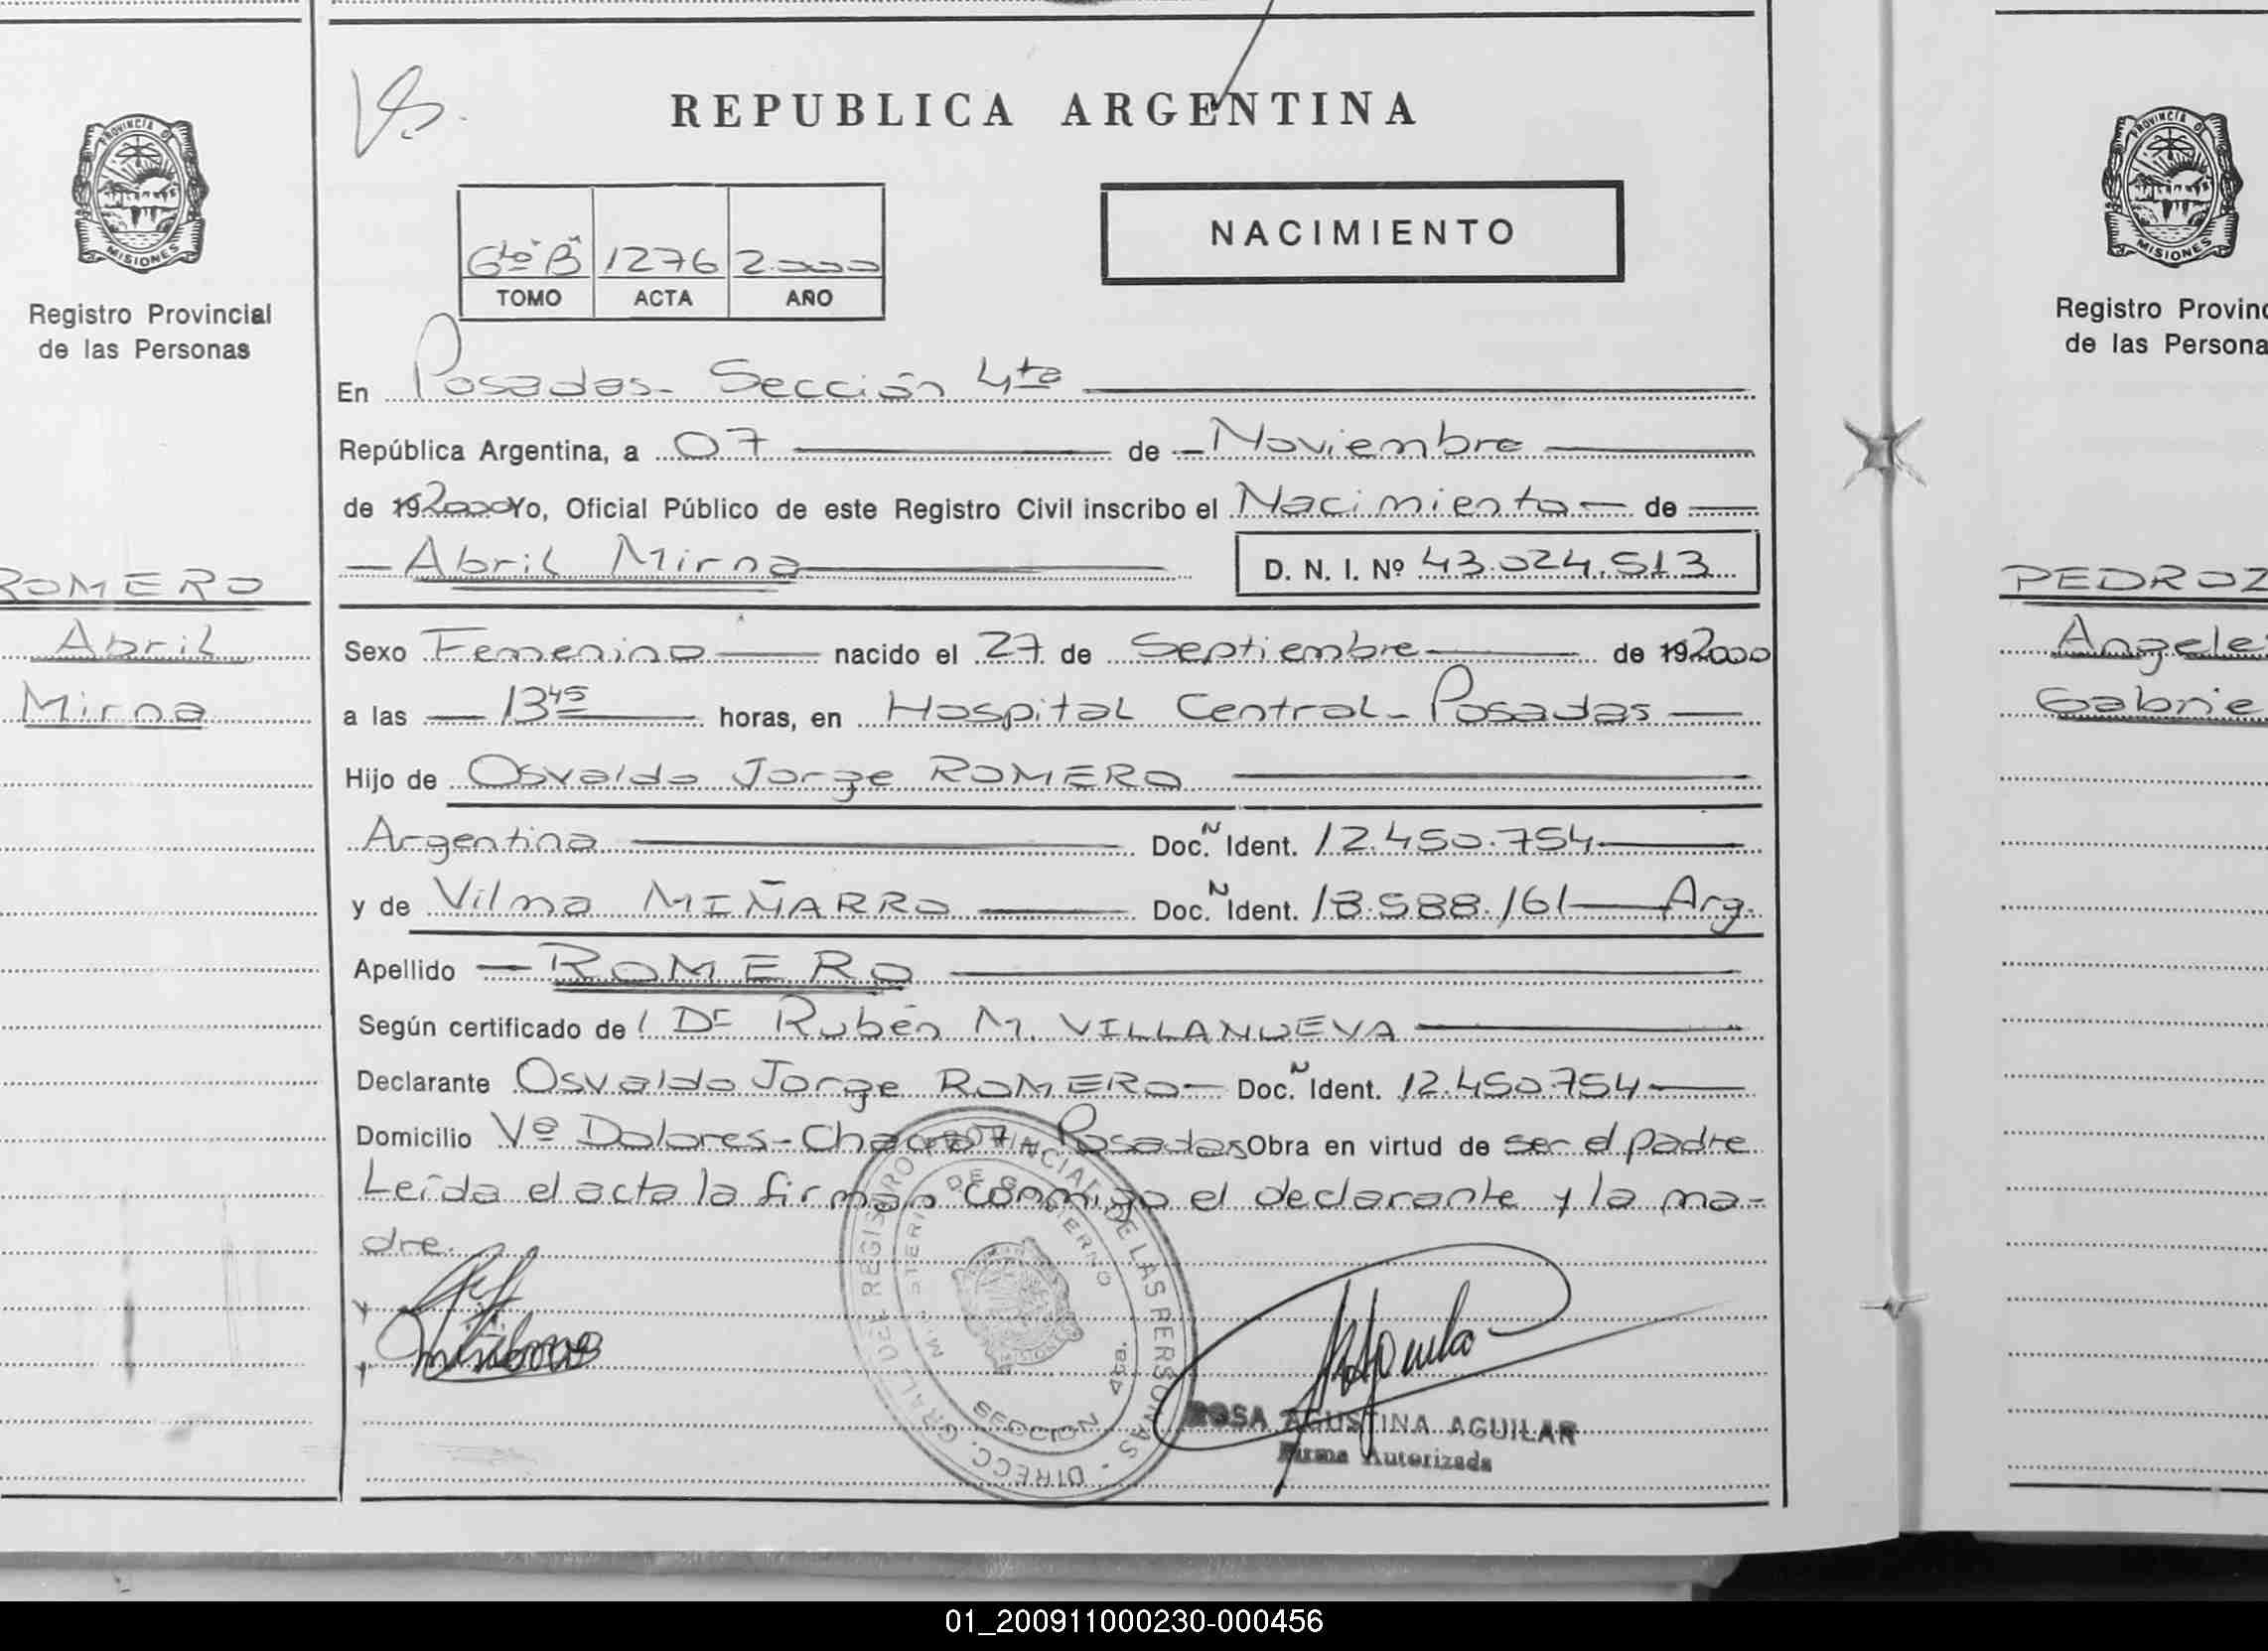 PROVINCIA DE
MISIONES
Registro Provincial
de las Personas
ROMERO
Abril
Mirna
REPUBLICA ARGENTINA
6to "B" 1276 2.000
TOMO ACTA AÑO
NACIMIENTO
En Posadas - Sección 4ta
República Argentina, a 07 de Noviembre
de 192000 Yo, Oficial Público de este Registro Civil inscribo el Nacimiento de
Abril Mirna D. N. I. Nº 43.024.513
Sexo Femenino nacido el 27 de Septiembre de 192000
a las 13 45 horas, en Hospital Central - Posadas
Hijo de Osvaldo Jorge ROMERO
Argentina Doc. N Ident. 12.450.754
y de Vilma MIÑARRO Doc. N Ident. 18.588.161 Arg.
Apellido ROMERO
Según certificado de l Dr Rubén M. VILLANUEVA
Declarante Osvaldo Jorge ROMERO Doc. N Ident. 12.450.754
Domicilio Vº Dolores - Chacra 7 Posadas Obra en virtud de ser el padre
Leída el acta la firman conmigo el declarante y la ma=
dre.
DIRECC. GRAL. DEL REGISTRO PROVINCIAL DE LAS PERSONAS
DE GOBIERNO
SECCION 4ta.
ROSA AGUSTINA AGUILAR
Firma Autorizada
PROVINCIA DE
MISIONES
Registro Provinc
de las Persona
PEDROZ
Angeles
Gabrie
01_200911000230-000456